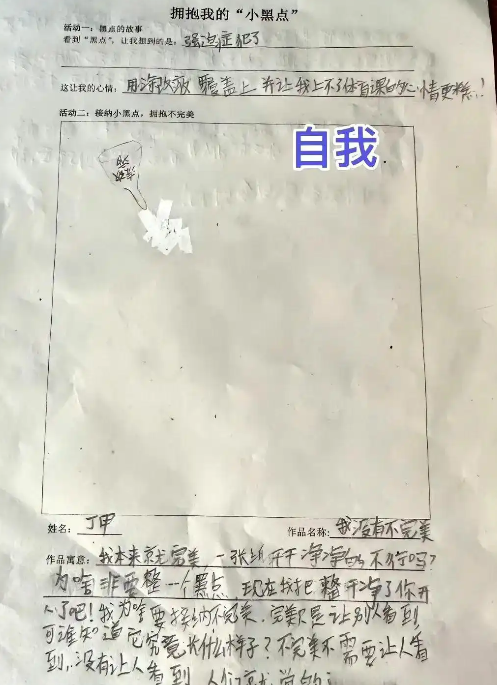 拥抱我的“小黑点”
活动一：黑点的故事
看到“黑点”，让我想到的是：强迫症犯了
这让我的心情：用涂改液覆盖上并让我上不了体育课的心情更糕！
活动二：接纳小黑点，拥抱不完美
自我
姓名：丁甲
作品名称：我没有不完美
作品寓意：我本来就完美，一张纸干干净净的不行吗？
为啥非要整一个黑点，现在我把整干净了你开
心了吧！我为啥要接纳不完美，完美是让别人看到
可谁知道它究竟长什么样子？不完美不需要让人看
到，没有让人看到，人们就